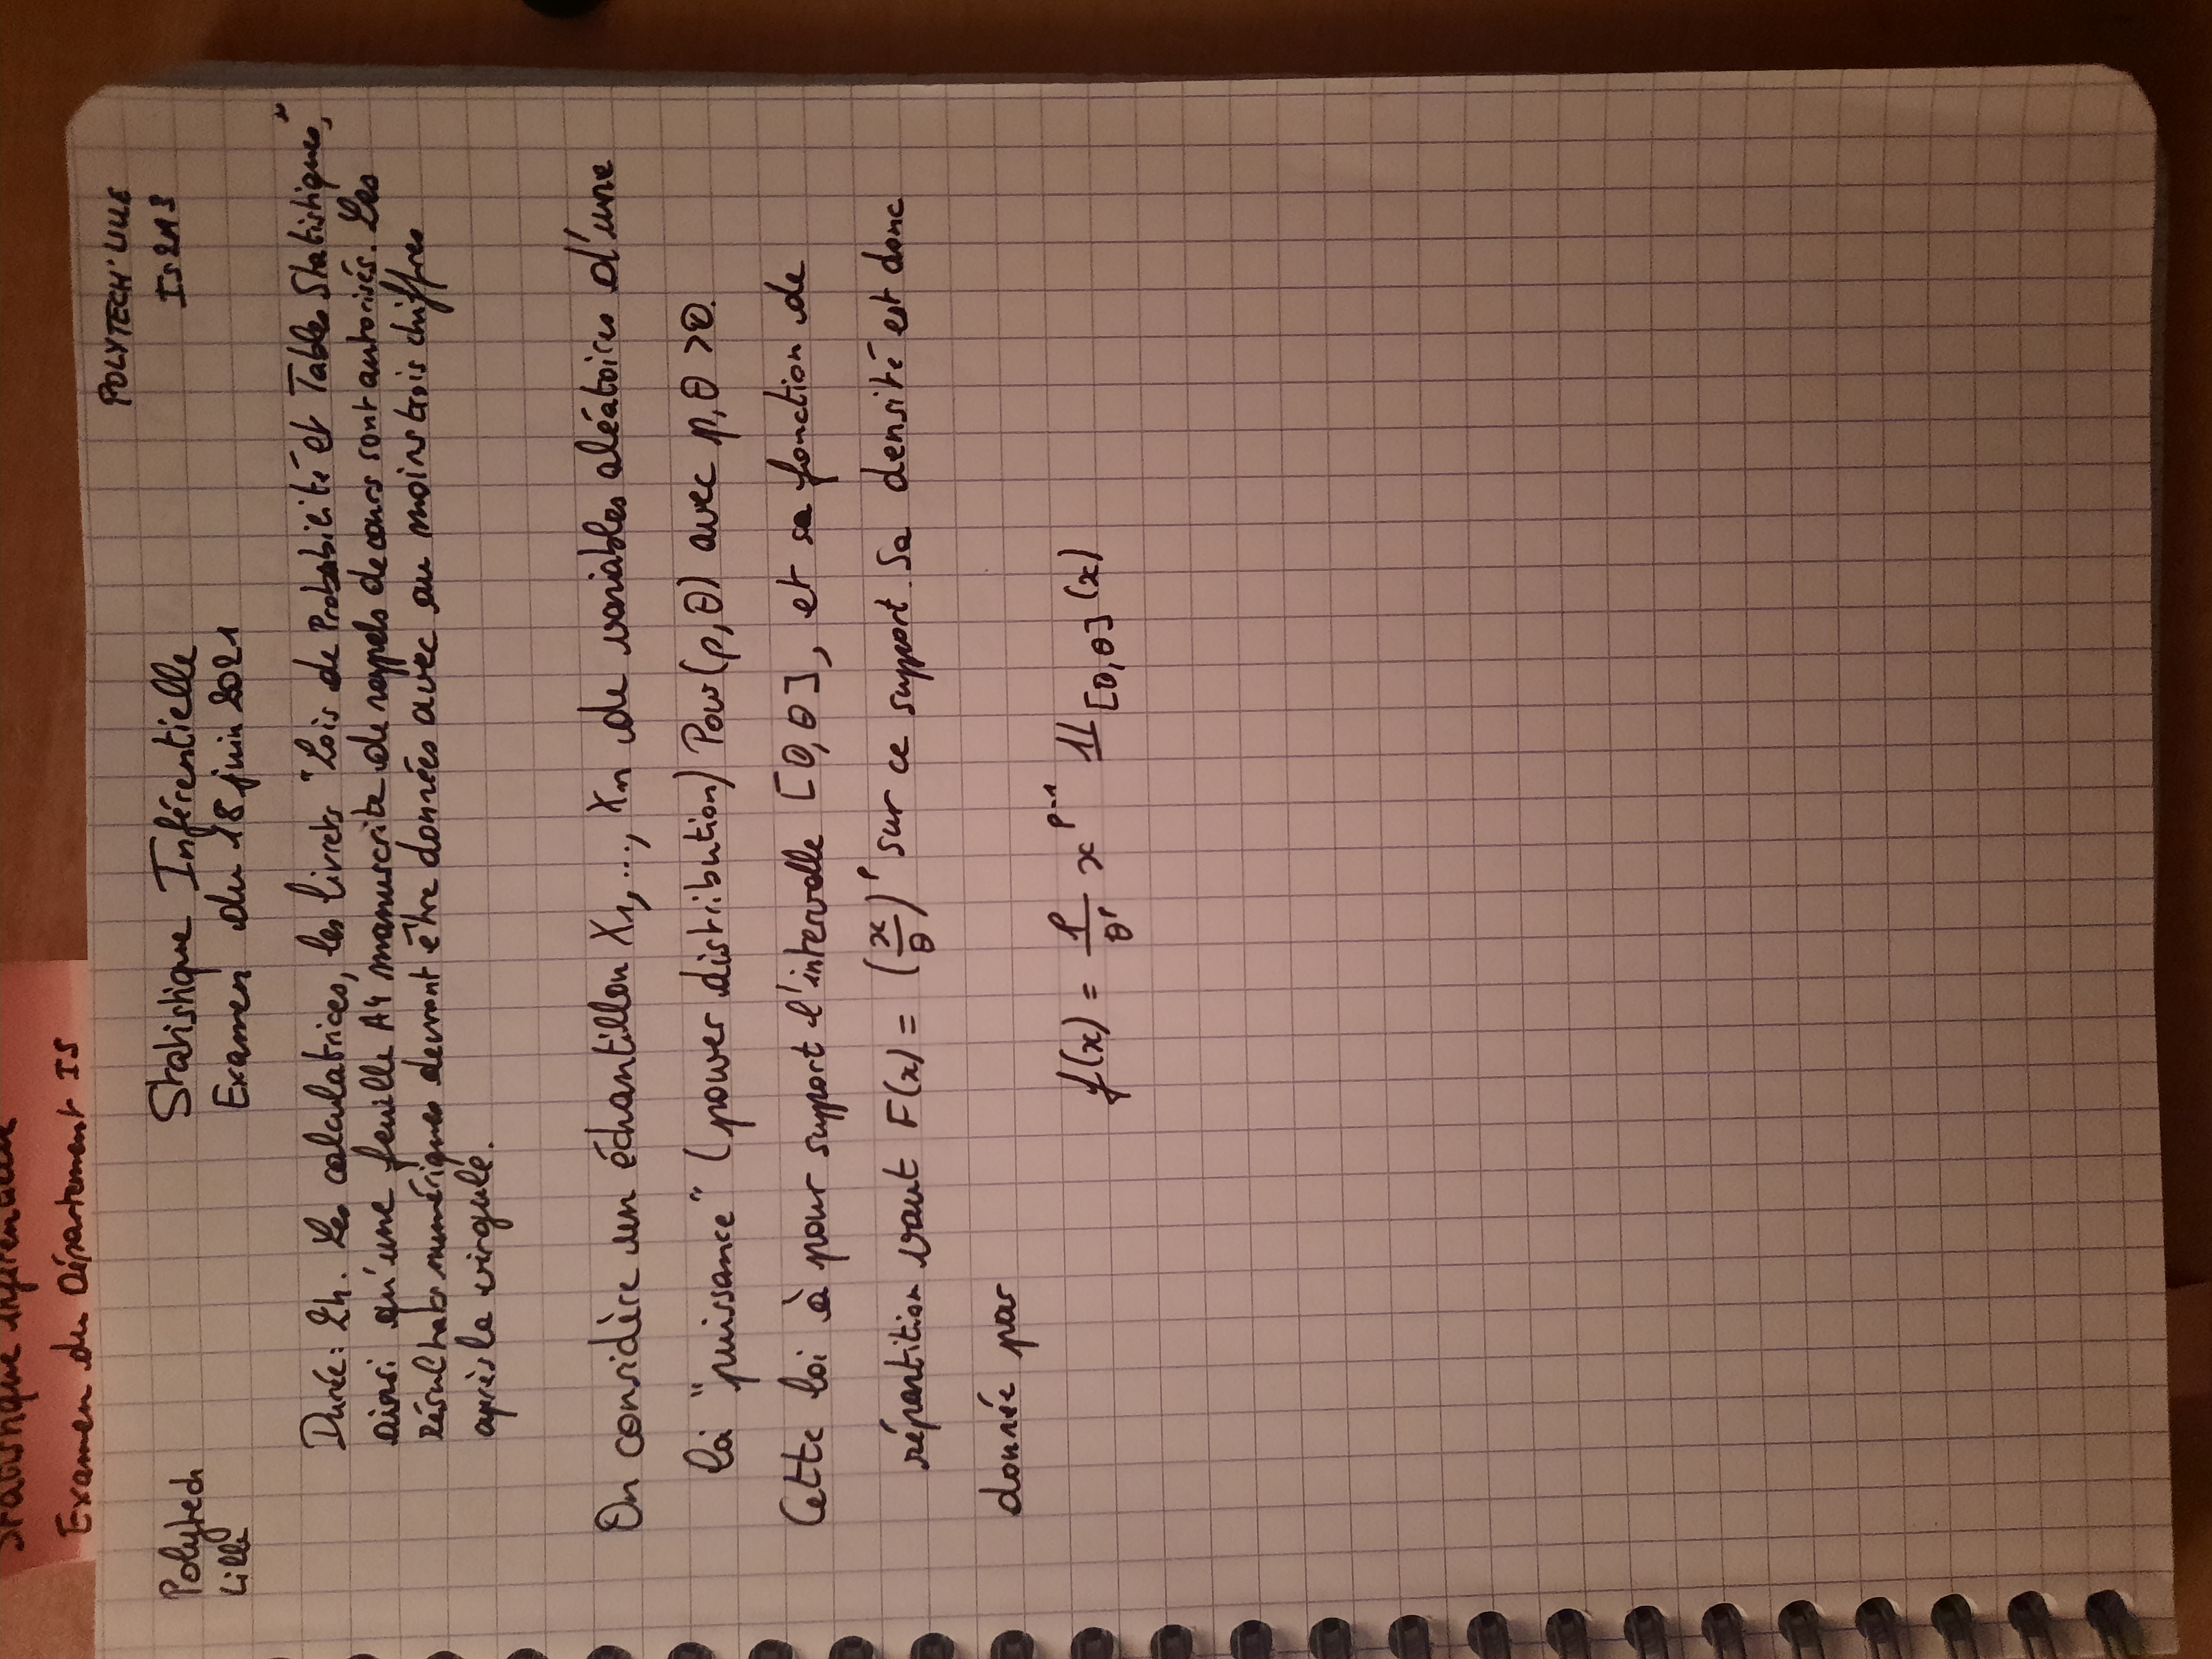 Statistique inférentielle
Examen du Département IS
POLYTECH'LILLE
IS2A3
Polytech
Lille
Statistique Inférentielle
Examen du 18 juin 2021
Durée: 2h. Les calculatrices, les livrets "Lois de Probabilité et Tables Statistiques",
ainsi qu'une feuille A4 manuscrite de rappels de cours sont autorisés. Les
résultats numériques devront être données avec au moins trois chiffres
après la virgule.
On considère un échantillon X₁, ..., Xₙ de variables aléatoires d'une
loi "puissance" (power distribution) Pow(p, θ) avec p, θ > 0.
Cette loi à pour support l'intervalle [0, θ], et sa fonction de
répartition vaut F(x) = (x/θ)^p sur ce support. Sa densité est donc
donnée par
f(x) = p/θ^p x^(p-1) 𝟙_[0,θ] (x)